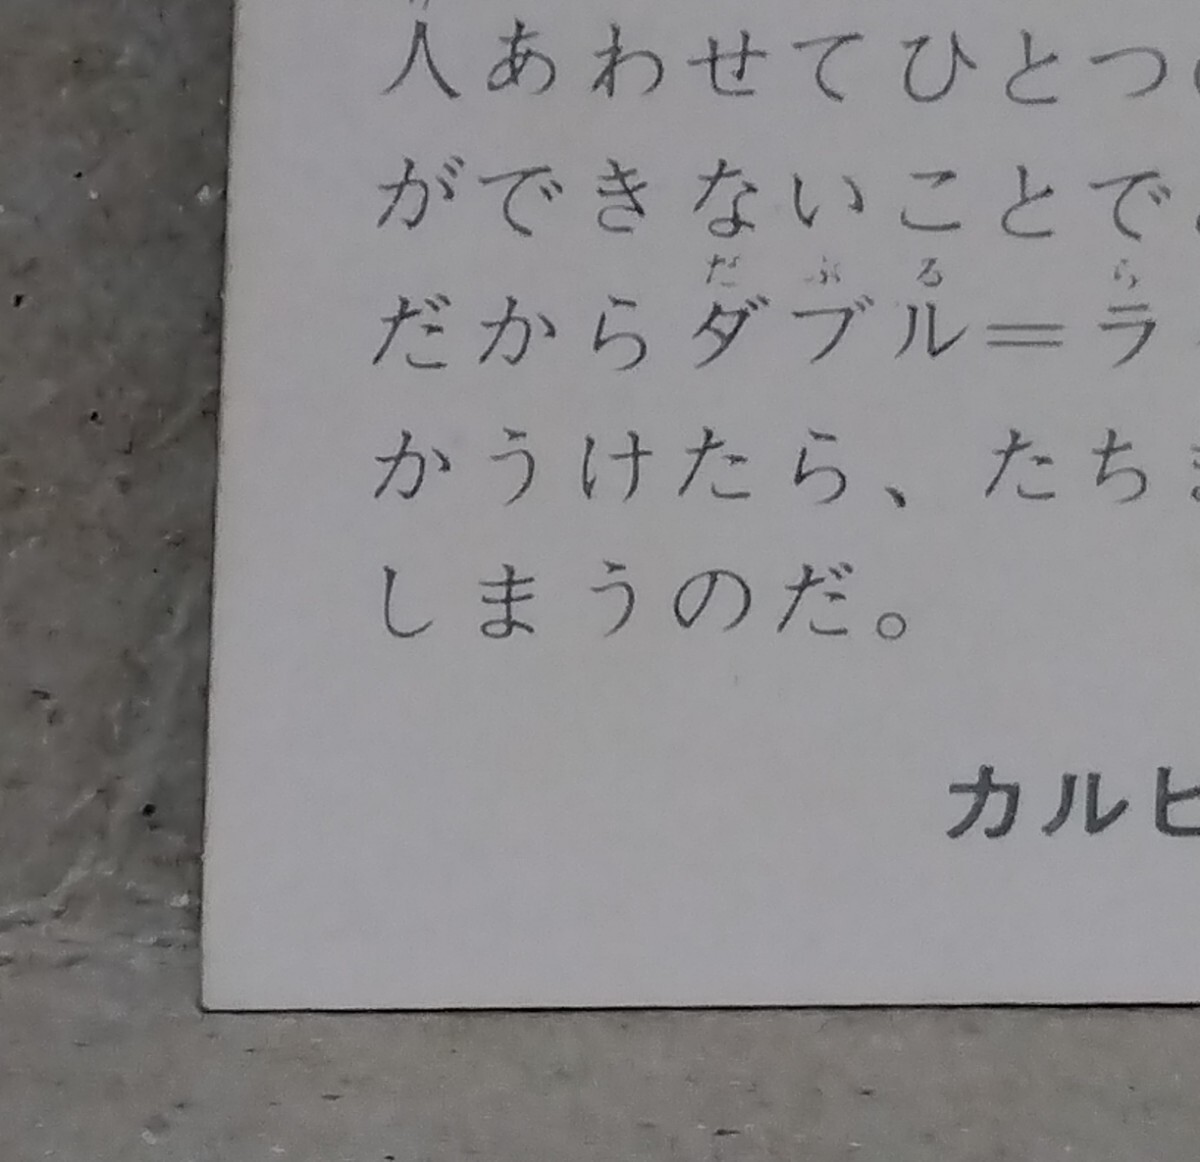 人あわせてひとつ
ができないことで
だからダブル＝ラ
かうけたら、たち
しまうのだ。
カルビ